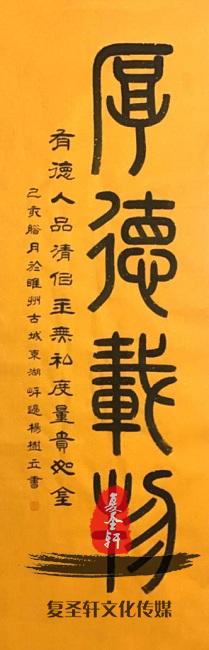 厚德載物
有德人品清似玉無私度量貴如金
己亥榴月於睢州古城東湖畔逸楊樹立書
复圣轩
复圣轩文化传媒